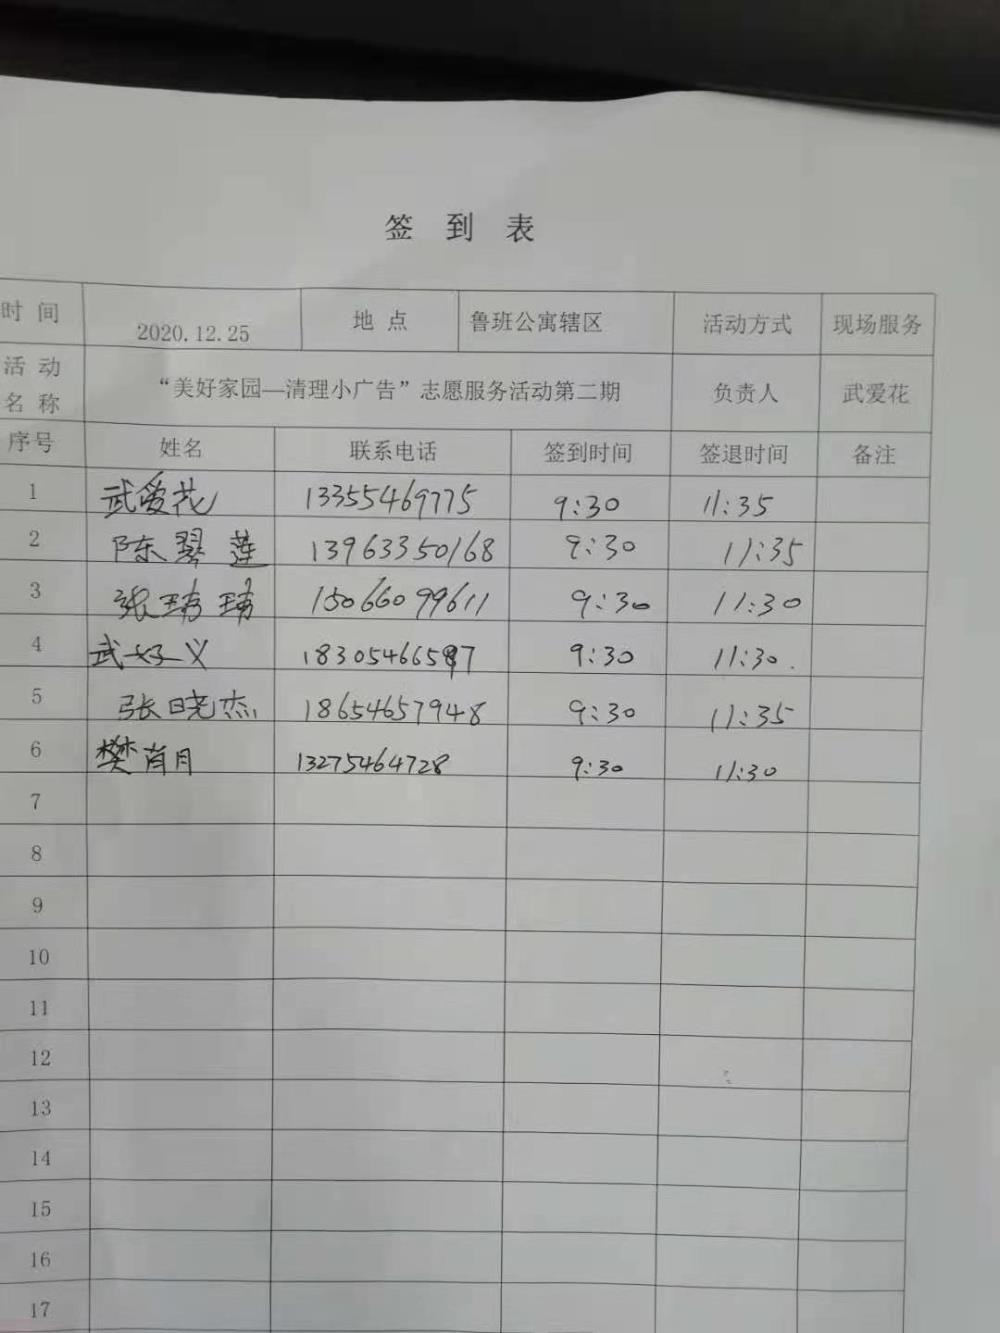 签 到 表
时 间 2020.12.25 地 点 鲁班公寓辖区 活动方式 现场服务
活 动 名 称 “美好家园—清理小广告”志愿服务活动第二期 负责人 武爱花
序号 姓名 联系电话 签到时间 签退时间 备注
1 武爱花 13355469775 9:30 11:35
2 陈翠莲 13963350168 9:30 11:35
3 张玮玮 15066099611 9:30 11:30
4 武好义 9:30 11:30.
5 张晓杰 18654657948 9:30 11:35
6 樊肖月 13275464728 9:30 11:30
7
8
9
10
11
12
13
14
15
16
17